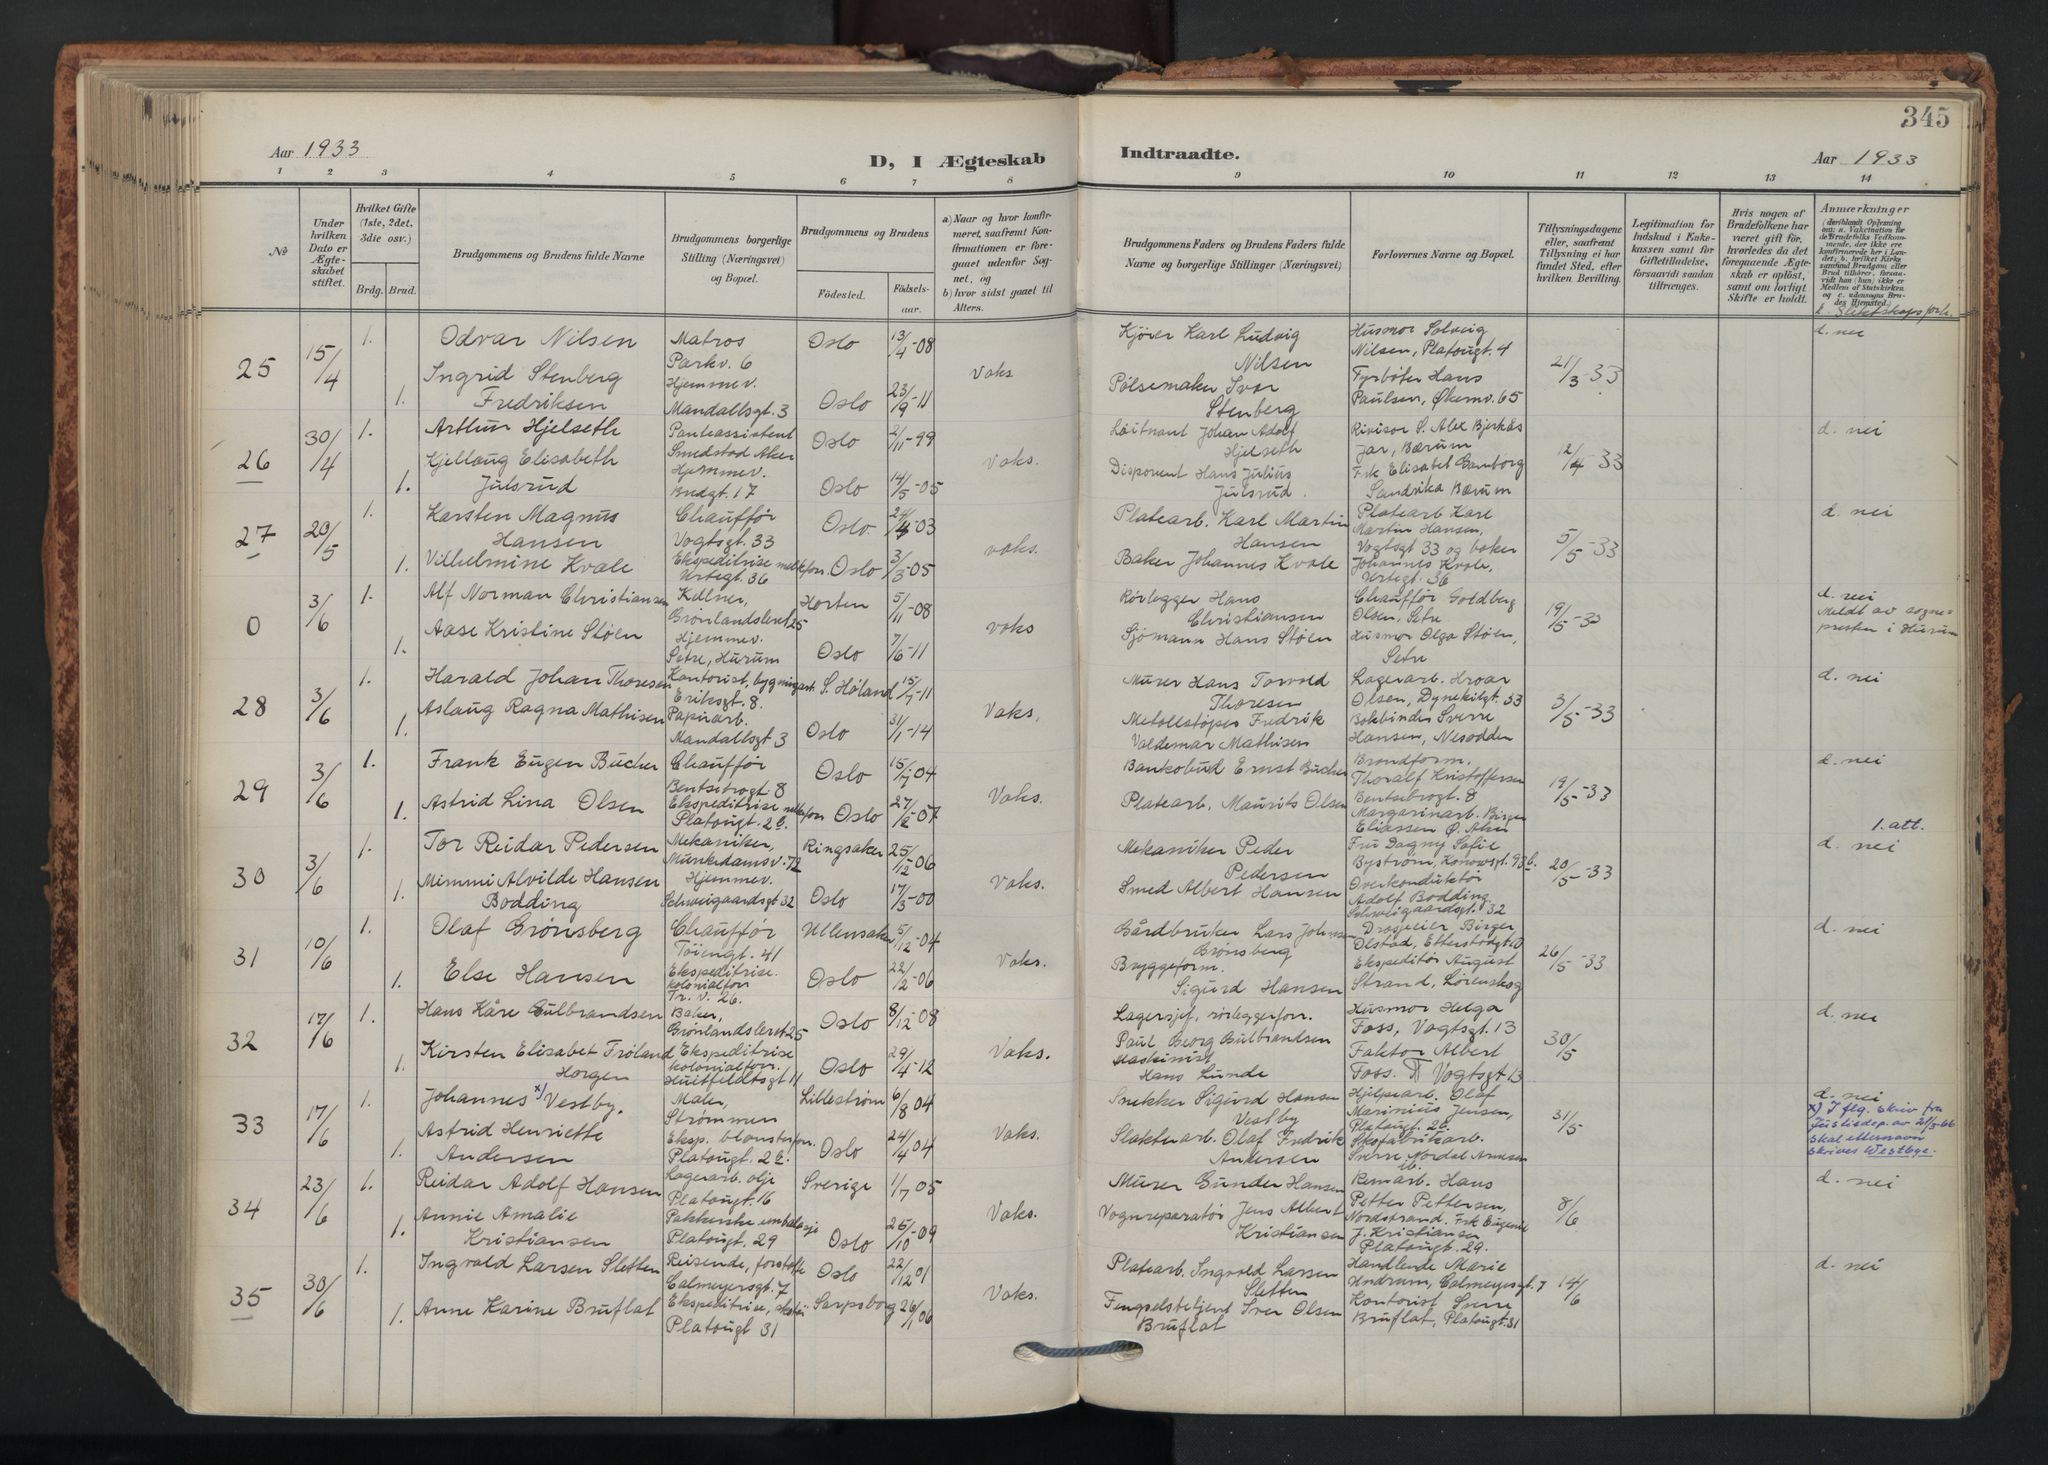 345
Aar 1933
D, I Ægteskab
Indtraadte.
Aar 1933
1 2 3 4 5 6 7 8 9 10 11 12 13 14
№
Under hvilken Dato er Ægteskabet stiftet.
Hvilket Gifte (1ste, 2det, 3die osv.)
Brdg. Brud.
Brudgommens og Brudens fulde Navne
Brudgommens borgerlige Stilling (Næringsvei) og Bopæl.
Brudgommens og Brudens
Fødested.
Fødselsaar.
a) Naar og hvor konfirmeret, saafremt Konfirmationen er foregaaet udenfor Sognet, og
b) hvor sidst gaaet til Alters.
Brudgommens Faders og Brudens Faders fulde Navne og borgerlige Stillinger (Næringsvei)
Forlovernes Navne og Bopæl.
Tillysningsdagene eller, saafremt Tillysning ei har fundet Sted, efter hvilken Bevilling.
Legitimation for Indskud i Enkekassen samt for Giftetilladelse, forsaavidt saadan tiltrænges.
Hvis nogen af Brudefolkene har været gift før, hvorledes da det foregaaende Ægteskab er opløst, samt om lovligt Skifte er holdt.
Anmærkninger
(deriblandt Oplysning om: a. Vakcination for de Brudefolks Vedkommende, der ikke ere konfirmerede her i Landet; b. hvilket Kirkesamfund Brudgom eller Brud tilhører, forsaavidt han (hun) ikke er Medlem af Statskirken og c. udensogns Brudes Hjemsted.)
d. Slektskapsforh.
25 15/4 1. Odvar Nilsen Matros Parkv. 6 Oslo 13/4-08
1. Ingrid Stenberg Fredriksen Hjemmev. Mandallsgt. 3 Oslo 23/9-11
Vaks
Kjører Karl Ludvig Nilsen
Pølsemaker Ivar Stenberg
Husmor Solveig Nilsen, Platougt. 4
Fyrbøter Hans Paulsen, Økernv. 65
21/3-33
d. nei
26 30/4 1. Arthur Hjelseth Smedstad Aker Oslo 2/11-99
1. Kjellaug Elisabeth Julsrud Hjemmev. Oslo 14/5-05
Vaks.
Løitnant Johan Adolf Hjelseth
Disponent Hans Julius Julsrud.
Revisor S. Alex Bjerkås Jar, Bærum
Frk Elisabet Gamborg Sandvika Bærum
12/4-33
d. nei
27 20/5 1. Karsten Magnus Hansen Chauffør Vogtsgt. 33 Oslo. 03
1. Vilhelmine Kvale Ekspeditrise melkeforr. Urtegt. 36 Oslo 3/3-05
vaks.
Platearb. Karl Martin Hansen
Baker Johannes Kvale
Platearb Karl Martin Hansen, Vogtsgt 33 og baker Johannes Kvale, Urtegt. 36
5/5-33
d. nei
0 3/6 1. Alf Norman Christiansen Kellner, Grønlandsleret 25 Horten 5/11-08
1. Aase Kristine Støen Hjemmev. Setre, Hurum Oslo 7/6-11
Vaks
Rørlegger Hans Christiansen
Sjømann Hans Støen
Chauffør Goldberg Olsen, Setre
Husmor Olga Støen, Setre
19/5-33
d. nei
Meldt av sognepresten i Hurum
28 3/6 1. Harald Johan Thoresen Kontorist, Eriksgt. 8. S. Høland 15/7-11
1. Aslaug Ragna Mathisen Papirarb. Mandallsgt 3 Oslo 31/1-14
Vaks,
Murer Hans Torvald Thoresen
Metallstøper Fredrik Valdemar Mathisen
Lagerarb. Hroar Olsen, Dynekilgt. 33
Bokbinder Sverre Hansen, Nesodden
3/5-33
d. nei
29 3/6 1. Frank Eugen Bucher Chauffør Bentsebrogt 8 Oslo 15/7 04
1. Astrid Lina Olsen Ekspeditrise melkeforr Platougt. 2b. Oslo 27/2-07
Vaks.
Bankobud Ernst Bucher
Platearb. Maurits Olsen
Brandform. Thoralf Kristoffersen Bentsebrogt. 8
Margarinarb. Birger Eliassen Ø. Aker
19/5-33
d. nei
1. att.
30 3/6 1. Tor Reidar Pedersen Mekaniker, Munkedamsv. 72 Ringsaker 25/12-06
1. Mimmi Alvilde Hansen Bodding Hjemmev. Schweigaardsgt 32 Oslo 17/3-00
Vaks.
Mekaniker Peder Pedersen
Smed Albert Hansen
Fru Dagny Sofie Byström, Konowsgt. 93b.
Overkonduktør Adolf Bodding. Schweigaardsgt. 32
20/5-33
d. nei
31 10/6 1. Olaf Grønsberg Chauffør Töiengt. 41 Ullensaker 5/12-04
1. Else Hansen Ekspeditrise. kolonialforr Tr. v. 26. Oslo 22/2-06
Vaks.
Gårdbruker Lars Johnsen Grønsberg
Bryggeform. Sigurd Hansen
Drosjeeier Birger Olstad,
Ekspeditør August Strand, Lørenskog
26/5-33
d. nei
32 17/6 1. Hans Kåre Gulbrandsen Baker, Grønlandsleret 25 Oslo 8/12-08
1. Kirsten Elisabet Frøland Horgen Ekspeditrise kolonialforr. Huitfeldtsgt 11 Oslo 29/4-12
Vaks.
Lagersjef, rørleggerforr. Paul Georg Gulbrandsen
Maskinist Hans Lunde
Husmor Helga Foss, Vogtsgt. 13
Faktor Albert Foss. Vogtsgt 13
30/5
d. nei
33 17/6 1. Johannes x) Vestby. Maler, Strømmen Lillestrøm 6/8 04
1. Astrid Henriette Andersen Eksp. blomsterforr. Platougt. 2b. Oslo 24/4 04
Vaks.
Snekker Sigurd Hansen Vestby
Slakterarb. Olaf Fredrik Andersen
Hjelpearb. Olaf Marinius Jensen, Platougt. 2b.
Skofabrikarb. Sverre Nordal Arnesen ib.
31/5
d. nei
x) I flg. skriv fra Justisdep. av 21/3-66 skal etternavn skrives Westbye.
34 23/6 1. Reidar Adolf Hansen Lagerarb. olje Platougt. 16 Sverige 1/7 05
1. Annie Amalie Kristiansen Pakkerske emballasje Platougt. 29 Oslo 25/10-09
Vaks.
Murer Gunder Hansen
Vognreparatør Jens Albert Kristiansen
Remarb. Hans Petter Pettersen, Nordstrand. Frk Eugenie J. Kristiansen Platougt. 29.
8/6
d. nei
35 30/6 1. Ingvald Larsen Sletten Reisende, Calmeyersgt. 7 Oslo 22/12 01
1. Anne Karine Bruflat Ekspeditrise, Platougt 31 Sarpsborg 26/1 06
Vaks.
Platearb. Ingvald Larsen Sletten
Fengselsbetjent Iver Olsen Bruflat
Handlende Marie Undrum, Calmeyersgt. 7
Kontorist Sverre Bruflat, Platougt. 31
14/6
d. nei